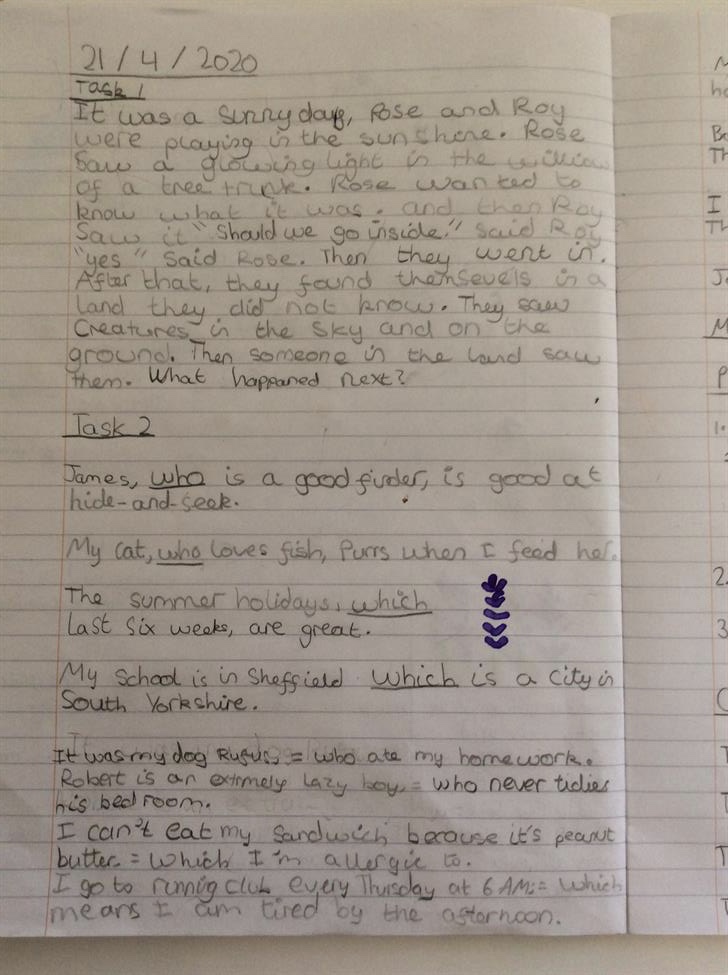 21/4/2020
Task 1
It was a sunny day, Rose and Roy
were playing in the sunshine. Rose
saw a glowing light in the
of a tree trunk. Rose wanted to
know what it was. and then Roy
Saw it "Should we go inside!" said Roy
"yes" said Rose. Then they went in.
After that, they found themsevels in a
land they did not know. They saw
Creatures in the Sky and on the
ground. Then someone in the land saw
them. What happaned next?
Task 2
James, who is a good finder, is good at
hide-and-seek.
My Cat, who loves fish, Purrs when I feed her.
The summer holidays, which
last six weeks, are great.
My School is in Sheffield which is a city in
South Yorkshire.
It was my dog Rufus, = who ate my homework.
Robert is an extrmely lazy boy, = who never tidies
his bedroom.
I can't eat my sandwich because it's peanut
butter. = which I'm allergic to.
I go to runnig club every Thursday at 6 AM, = which
means I am tired by the afternoon.
M
ho
Be
Th
I
Th
Ja
M
P
1.
2.
3
C
T
T
T
T